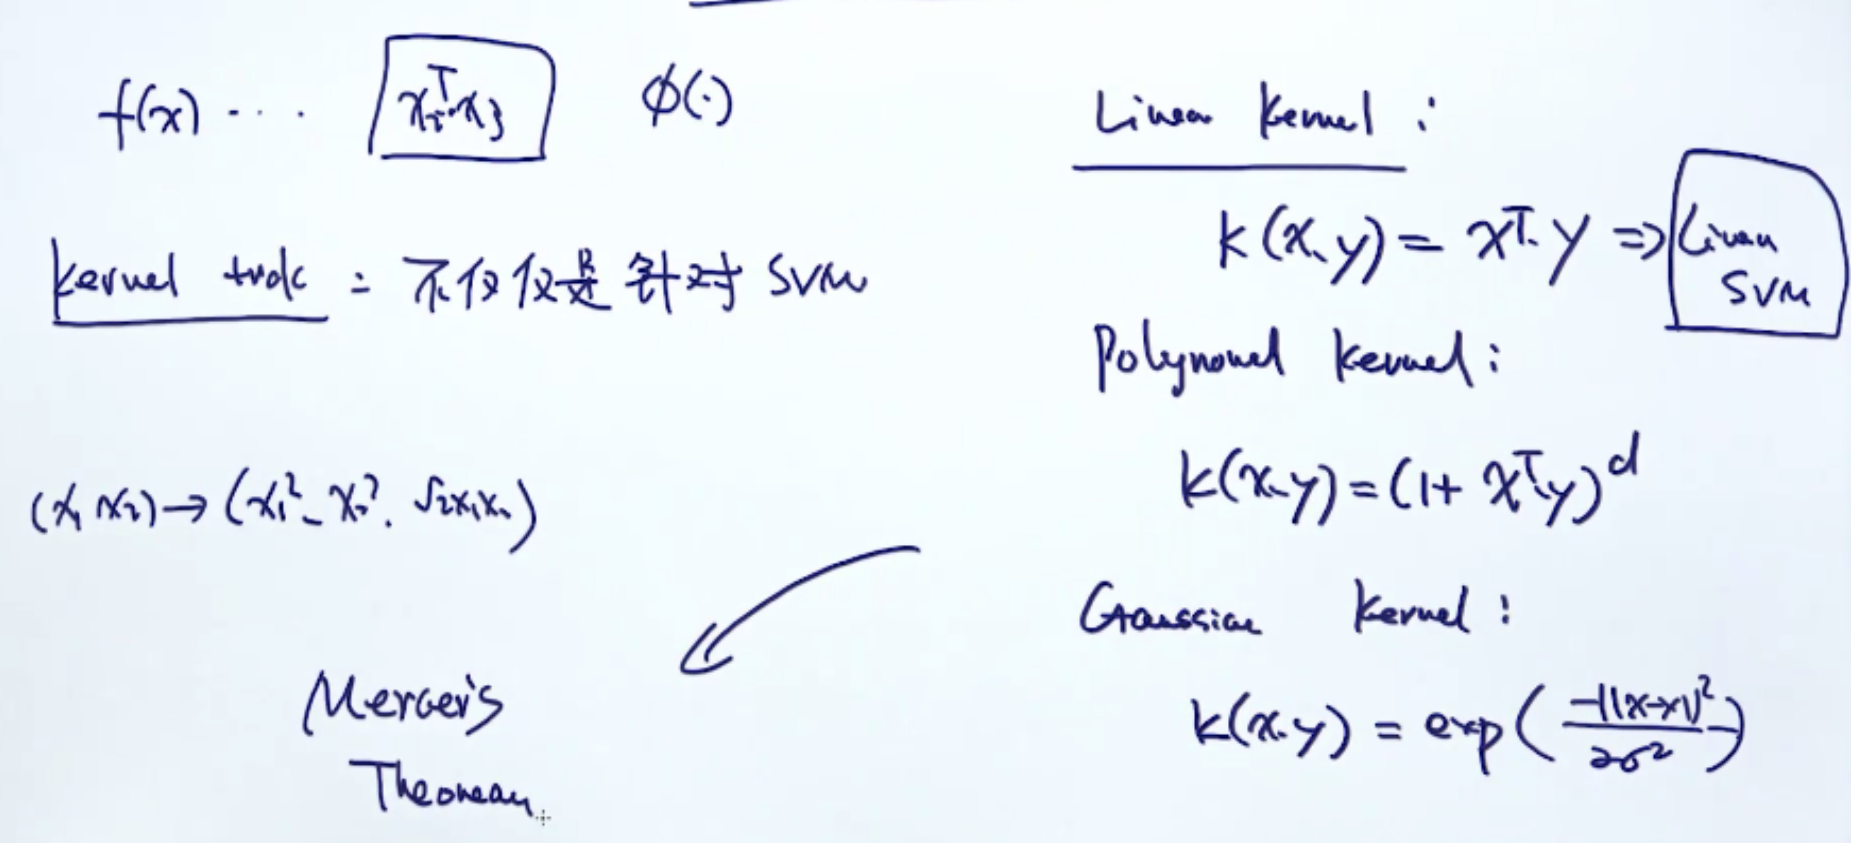 f(x) ... xᵢᵀ·xⱼ φ(·)
kernel trick : 不仅仅是针对 SVM
(x₁ x₂) → (x₁², x₂², √2x₁x₂)
Mercer's
Theorem
Linear Kernel :
k(x,y) = xᵀ·y ⇒ Linear SVM
Polynomial Kernel :
k(x,y) = (1 + xᵀ·y)ᵈ
Gaussian Kernel :
k(x,y) = exp(-||x-y||² / 2σ²)